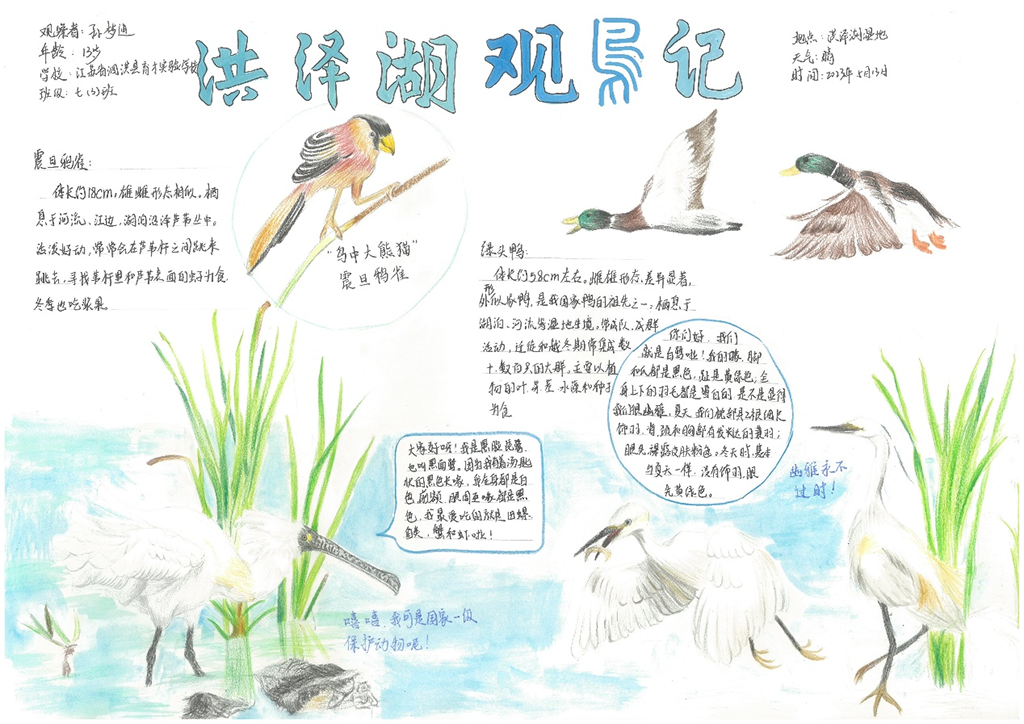 观察者:孙梦迪
年龄:13岁
学校:江苏省泗洪县育才实验学校
班级:七(3)班
洪泽湖观鸟记
地点:洪泽湖湿地
天气:晴
时间:2023年5月13日
震旦鸦雀:
体长约18cm,雄雌形态相似。栖
息于河流、江边、湖泊沼泽芦苇丛中。
活泼好动,常常会在芦苇杆之间跳来
跳去,寻找苇杆里和芦苇表面的虫子为食。
冬季也吃浆果。
“鸟中大熊猫”
震旦鸦雀
绿头鸭:
体长约58cm左右。雌雄形态差异显著,
外形似家鸭,是我国家鸭的祖先之一,栖息于
湖泊、河流等湿地生境,常成队,成群
活动,迁徙和越冬期常集成数
十、数百只的大群。主要以植
物的叶、芽、茎、水藻和种子
为食
你们好,我们
就是白鹭啦!我的嘴、脚
和爪都是黑色,趾是黄绿色。全
身上下的羽毛都是蛋白的 是不是显得
我们很幽雅,夏天 我们枕部具2根细长
饰羽,背、颈和胸部有发达的蓑羽;
眼先裸露皮肤粉色,冬天时,基本
与夏天一样,没有饰羽,眼
先黄绿色。
大家好呀!我是黑脸琵鹭,
也叫黑面鹭。因为我有汤匙
状的黑色长嘴,身全部都是白
色,面颊、眼周至嘴都是黑
色,我最爱吃的就是田螺、
鱼类,蟹和虾啦!
幽雅永不
过时!
嘻嘻,我可是国家一级
保护动物呢!